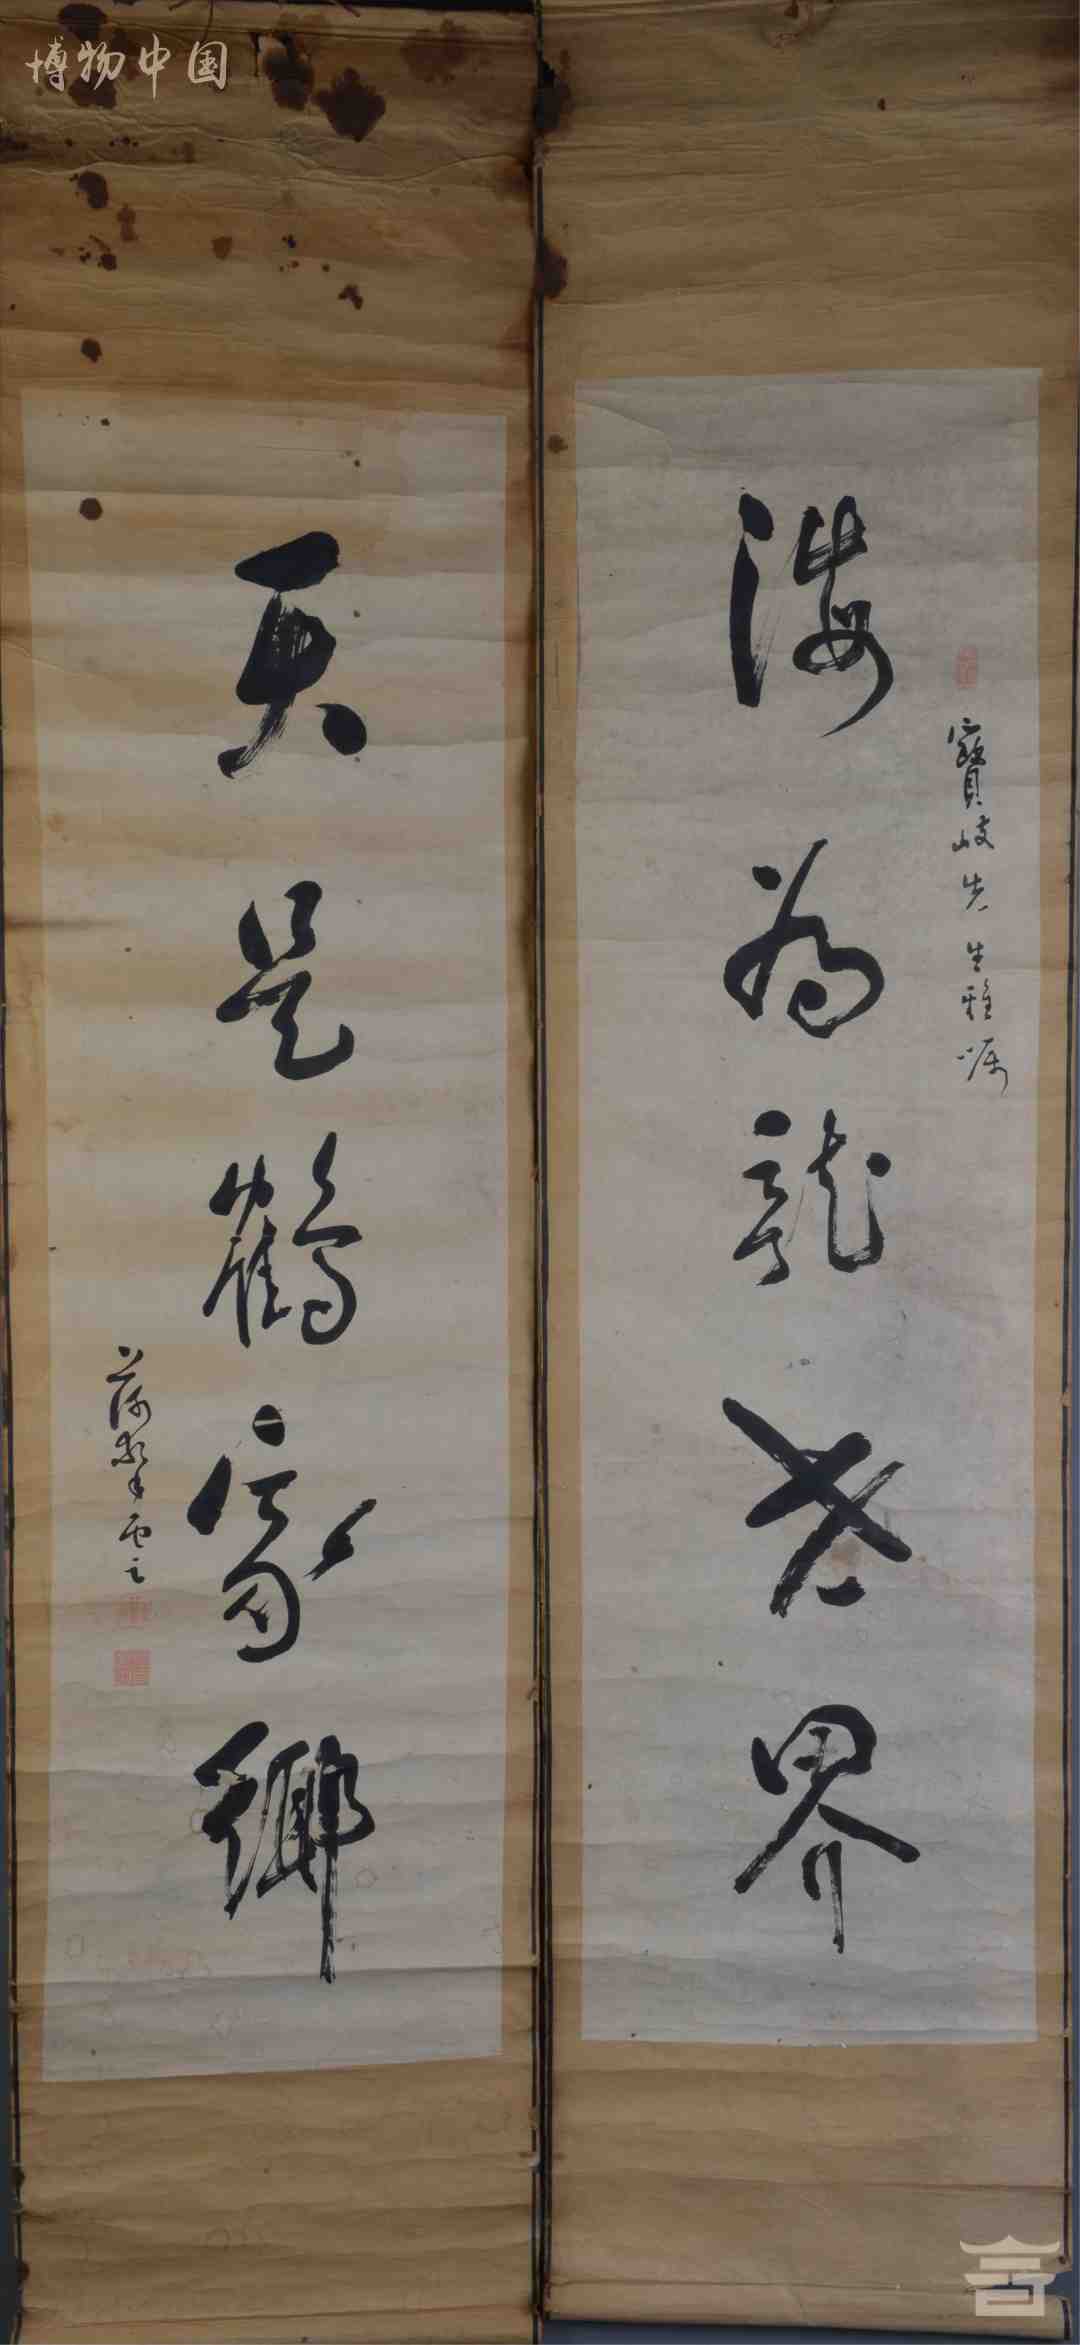 博物中国
寶岐先生雅嘱
海為龍世界
天是鶴家鄉